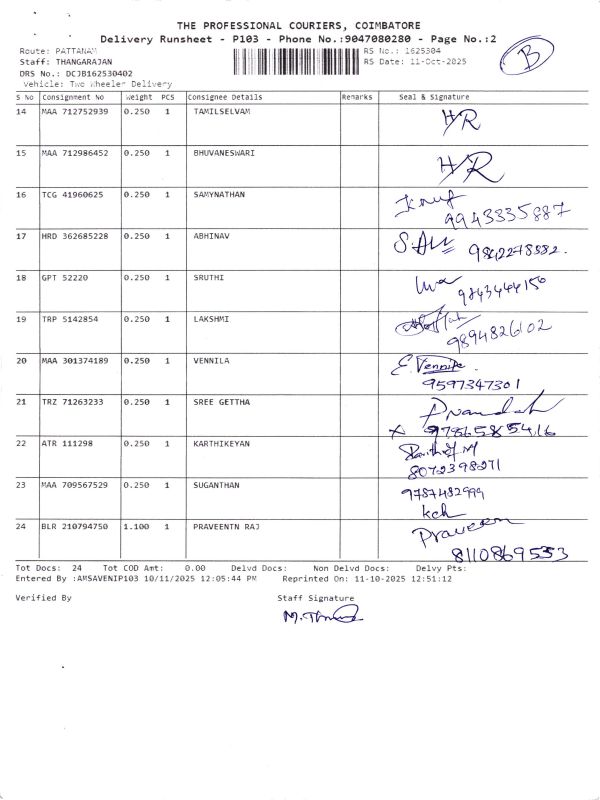 THE PROFESSIONAL COURIERS, COIMBATORE
Delivery Runsheet - P103 - Phone No.:9047080280 - Page No.:2
Route: PATTANAM RS No.: 1625304
Staff: THANGARAJAN RS Date: 11-Oct-2025
DRS No.: DCJB162530402
Vehicle: Two Wheeler Delivery
B
S No Consignment No Weight PCS Consignee Details Remarks Seal & Signature
14 MAA 712752939 0.250 1 TAMILSELVAM H/R
15 MAA 712986452 0.250 1 BHUVANESWARI H/R
16 TCG 41960625 0.250 1 SAMYNATHAN
9943335887
17 HRD 362685228 0.250 1 ABHINAV
18 GPT 52220 0.250 1 SRUTHI
9843444150
19 TRP 5142854 0.250 1 LAKSHMI
9894826102
20 MAA 301374189 0.250 1 VENNILA E. Vennila
9597347301
21 TRZ 71263233 0.250 1 SREE GETTHA
22 ATR 111298 0.250 1 KARTHIKEYAN
8072398271
23 MAA 709567529 0.250 1 SUGANTHAN 9787482999
24 BLR 210794750 1.100 1 PRAVEENTN RAJ Praveen
8110869553
Tot Docs: 24 Tot COD Amt: 0.00 Delvd Docs: Non Delvd Docs: Delvy Pts:
Entered By :AMSAVENIP103 10/11/2025 12:05:44 PM Reprinted On: 11-10-2025 12:51:12
Verified By Staff Signature